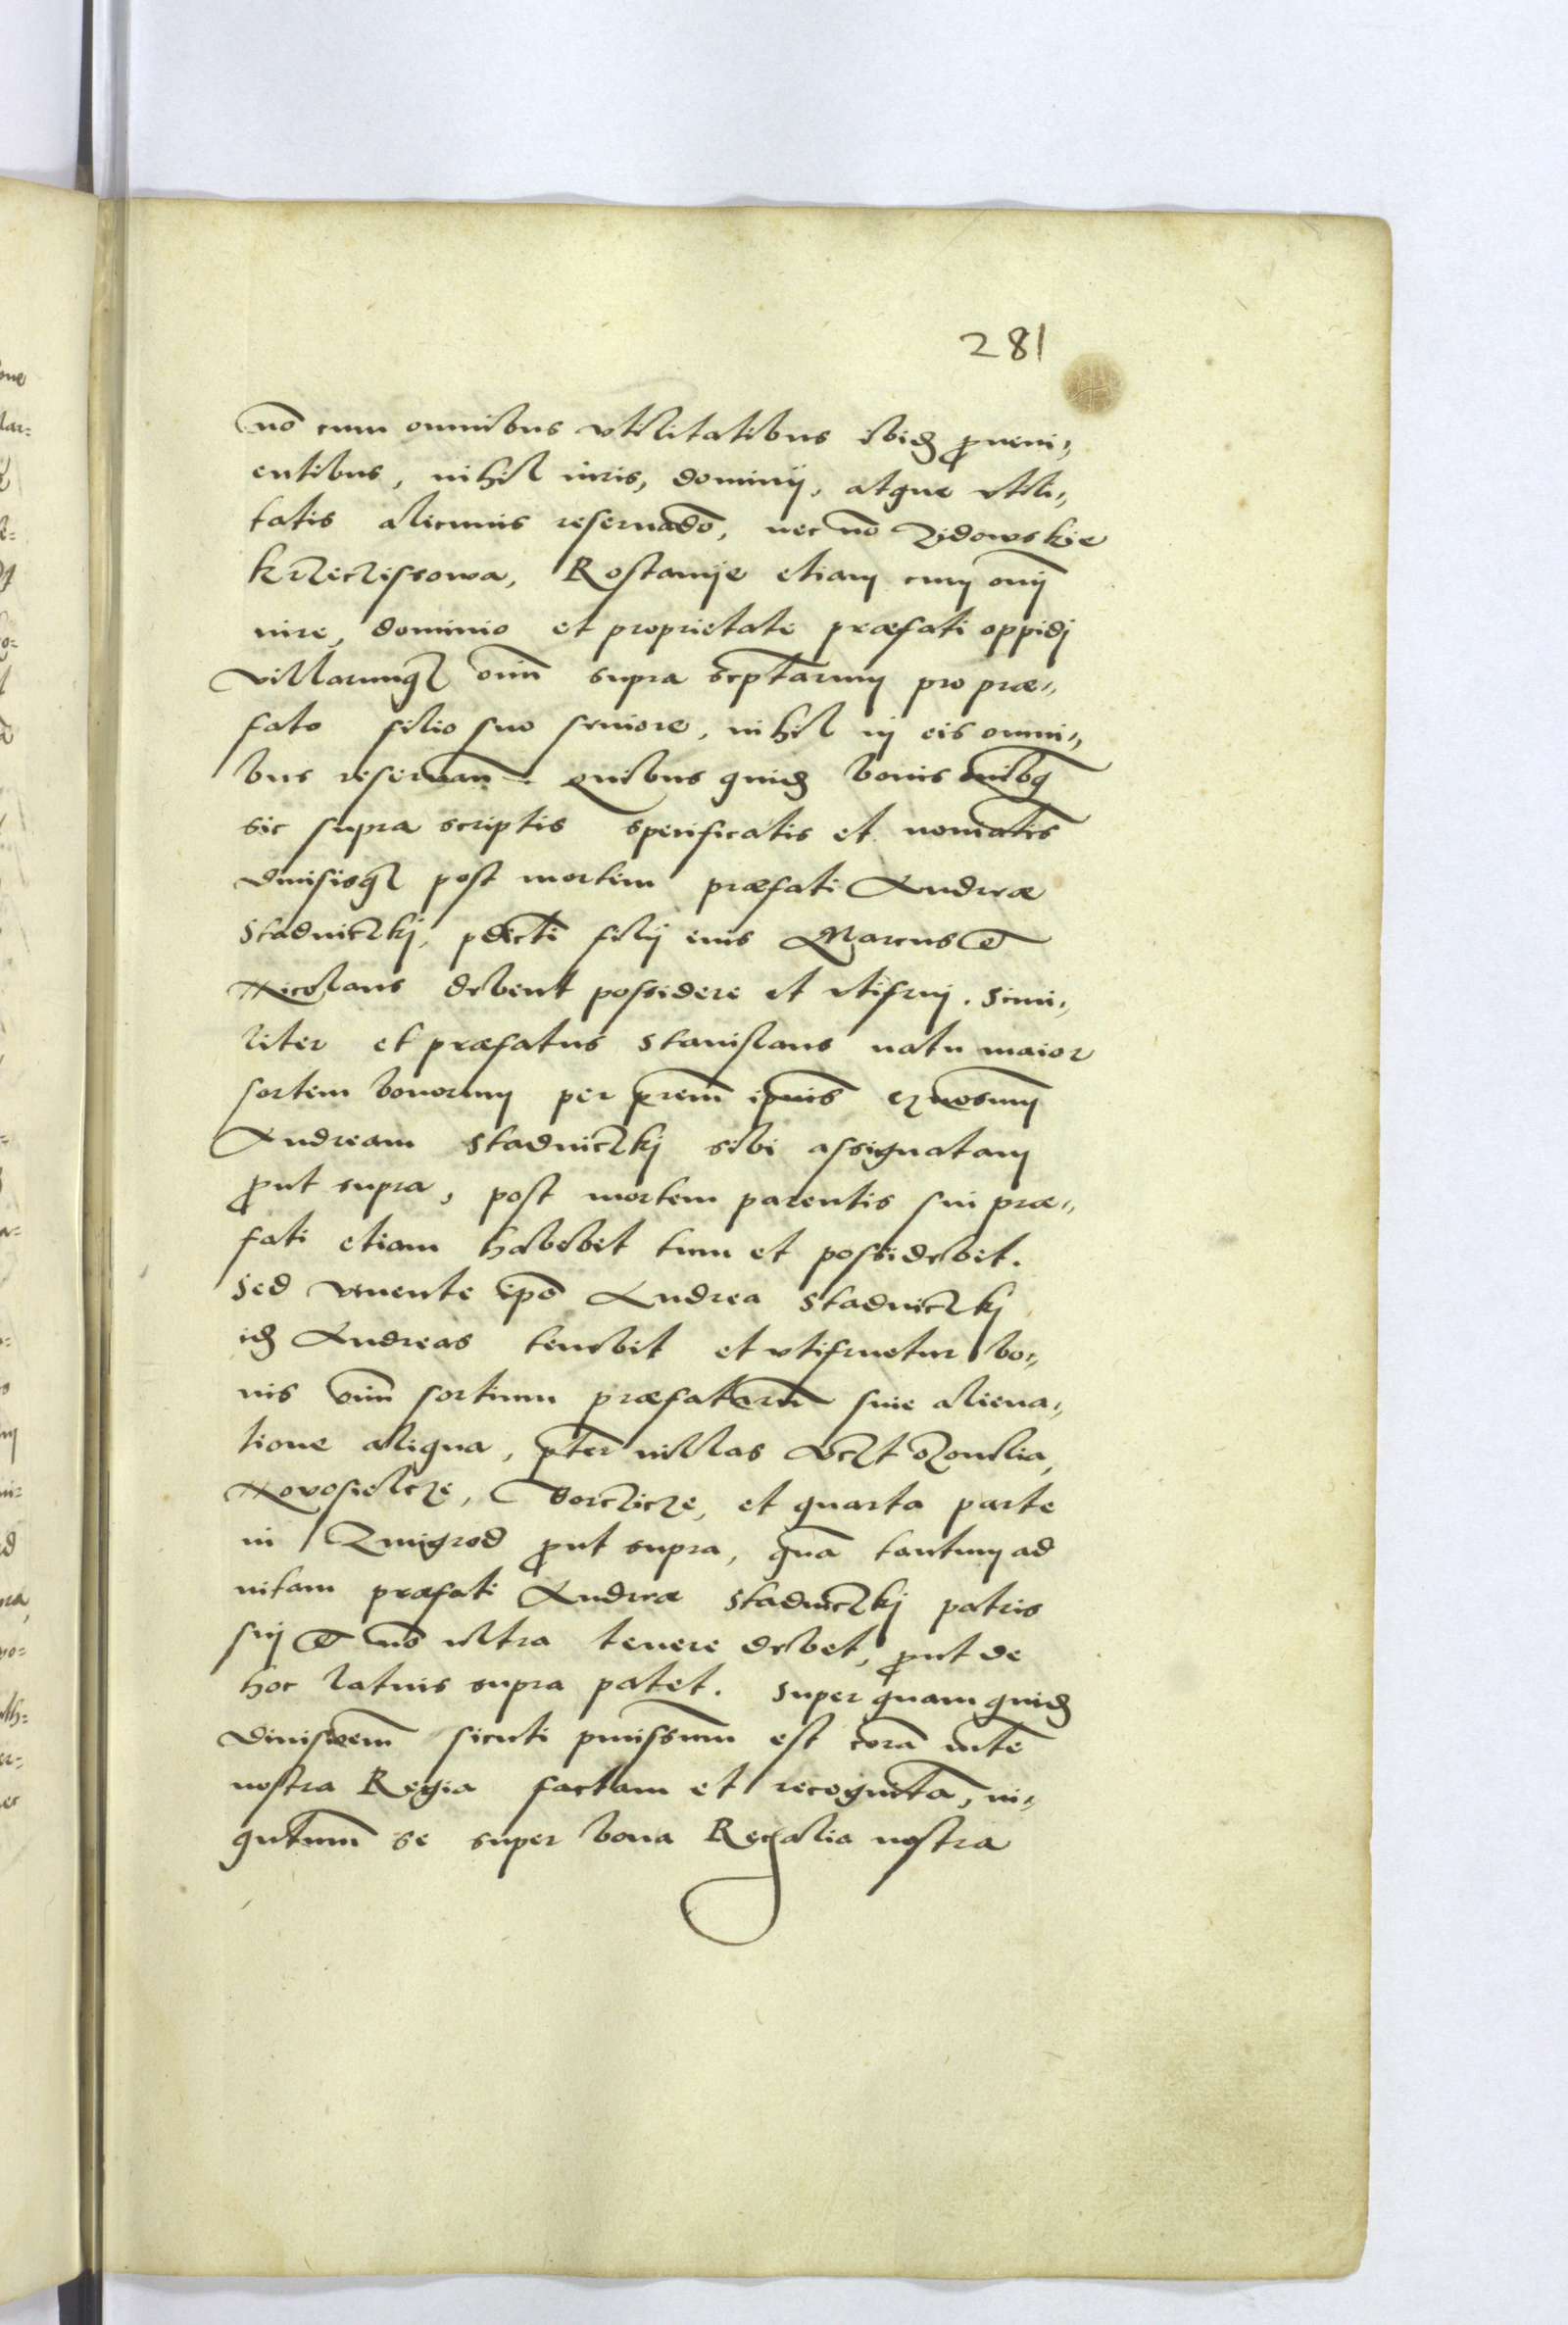 281
nō cum omnibus vtilitatibus ibidē ꝓueni„
entibus, nihil iuris, dominij, atque vtili„
tatis alicuius reseruādo, nec nō Zydowskie
krzeczissowa, Rostamye etiam cum om̄i
iure, dominio et proprietate præfati oppidi
villarumqȝ om̄iū supra scptarum pro præ„
fato filio suo seniore, nihil in eis omni„
bus reseruan̄. Quibus quidē bonis om̄ibȝ
sic supra scriptis specificatis et nomīatis
diuisisqȝ post mortem præfati Andreæ
Stadniczkj, pdicti filij eius Marcus et
Nicolaus debent possidere et vtifrui. Simi„
liter et præfatus Stanislaus natu maior
sortem bonorum per prem̄ ipsius gnosum
Andream Stadniczkj sibi assignatam
ꝓut supra, post mortem parentis sui præ„
fati etiam habebit tum et possidebit.
Sed viuente ip̄o Andrea Stadniczkj
idē Andreas tenebit et vtifruetur bo„
nis om̄iū sortium præfatarū sine aliena„
tione aliqua, pter villas
Novosielcze, et quarta parte
in Zmigrod ꝓut supra, quā tantum ad
vitam præfati Andreæ Stadniczkj patris
sui et nō vltra tenere debet, ꝓut de
hoc latius supra patet. Super quam quidē
diuisioem̄ sicuti pmissum est corā mte
nostra Regia factam et recognitā, in„
quātum se super bona Regalia nostra